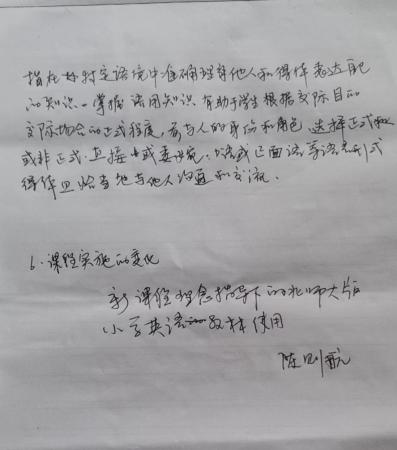 指在特定语境中准确理解他人和得体表达自己
的知识。掌握语用知识有助于学生根据交际目的
交际场合的正式程度、参与人的身份和角色，选择正式
或非正式、直接或委婉、口头或书面语等语言形式
得体且恰当地与他人沟通和交流。
6. 课程实施的变化
新课程理念指导下的北师大版
小学英语教材使用
陈则航